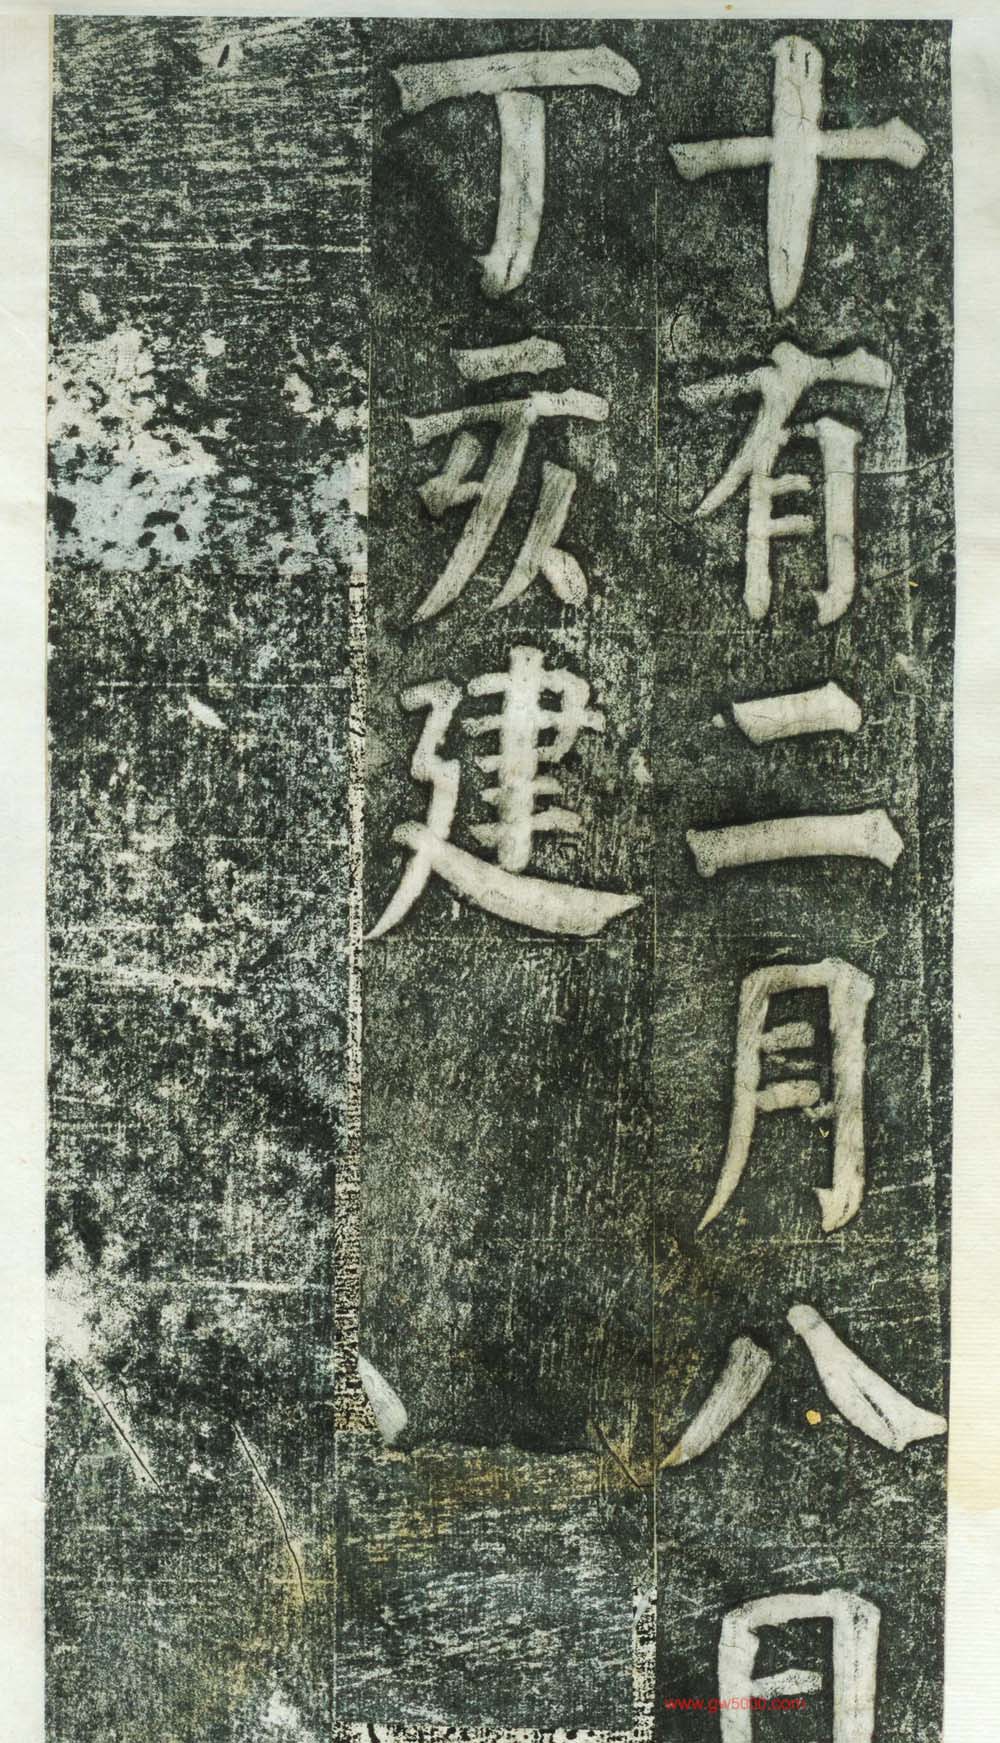 十有二月八日
丁亥建
www.gw5000.com